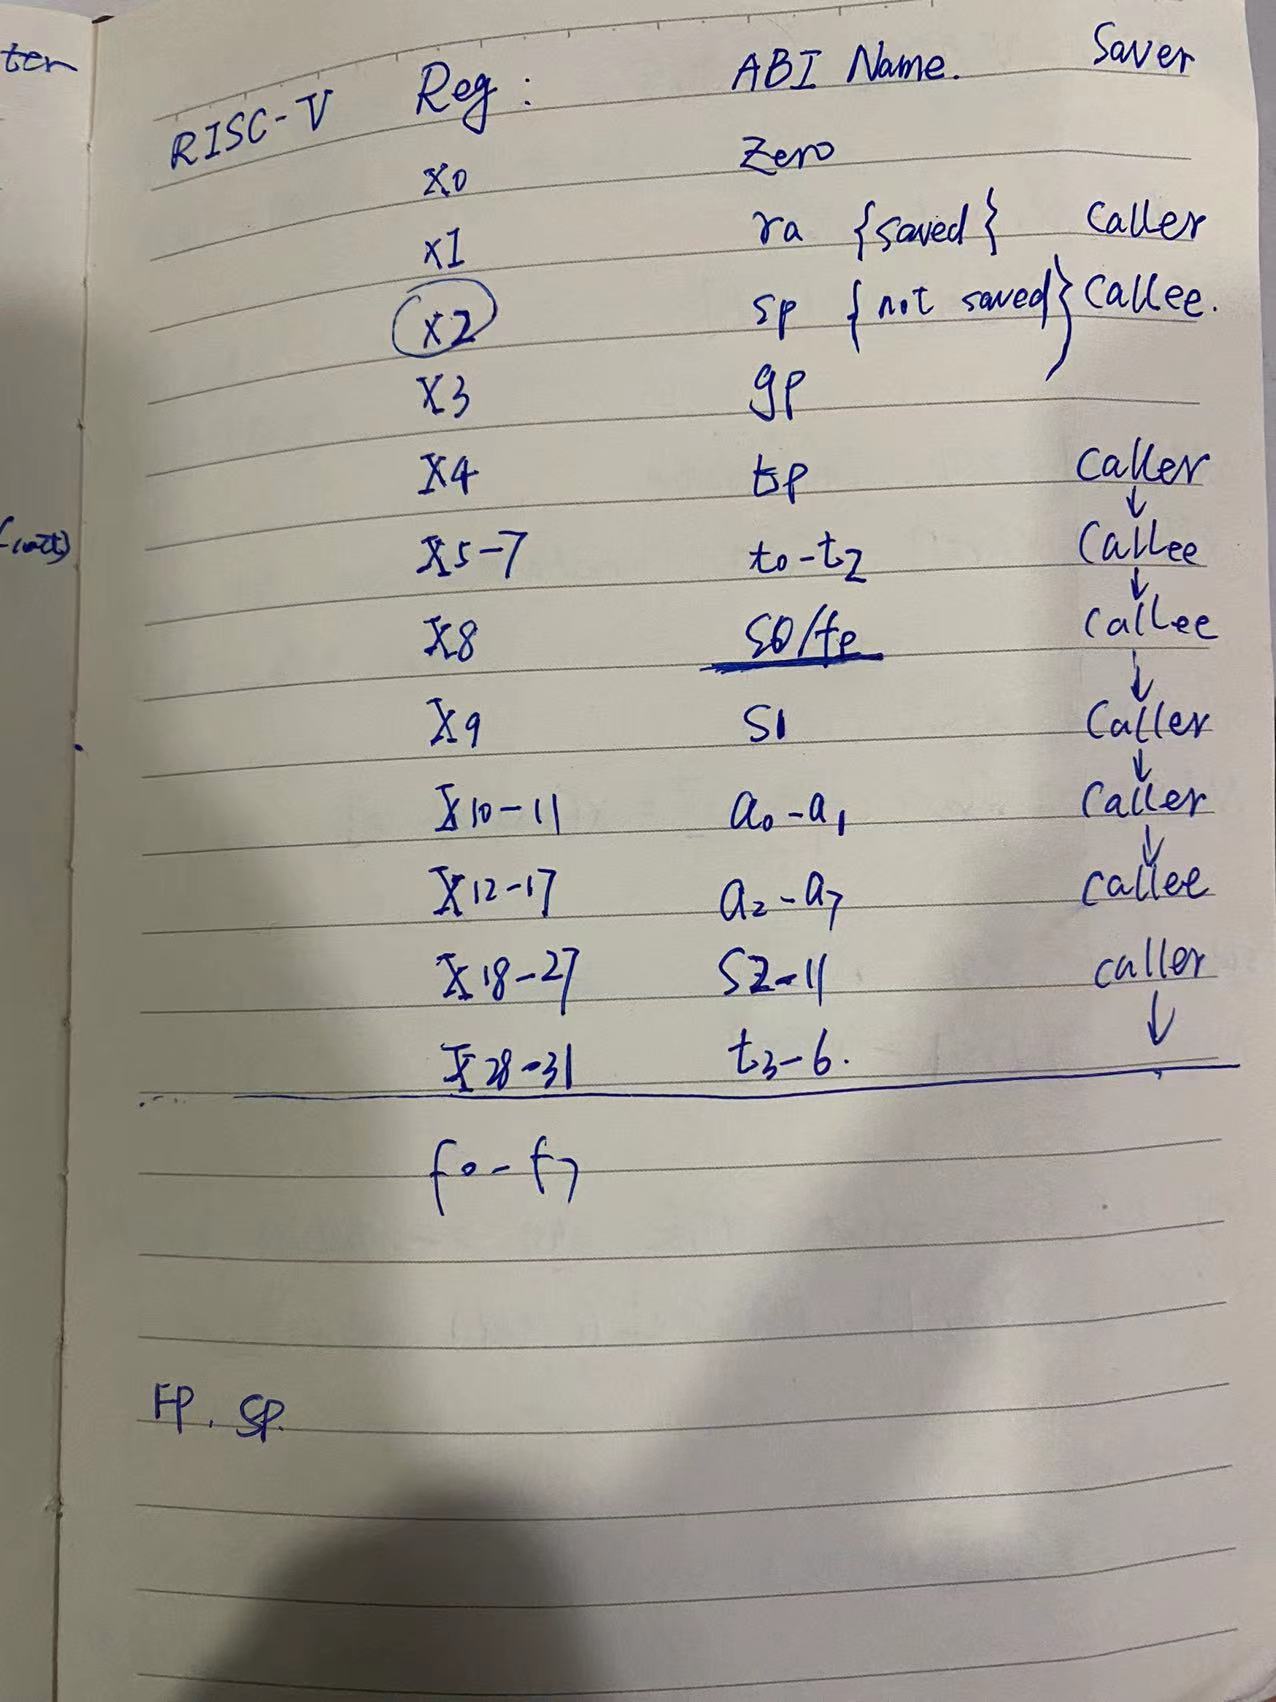 ter
RISC-V Reg: ABI Name. Saver
x0 Zero
x1 ra {saved} Caller
x2 sp {not saved} Callee.
x3 gp
x4 tp Caller
x5-7 t0-t2 Callee
x8 S0/fp Callee
x9 S1 Caller
x10-11 a0-a1 Caller
x12-17 a2-a7 Callee
x18-27 S2-11 caller
x28-31 t3-6.
f0-f7
FP. SP.